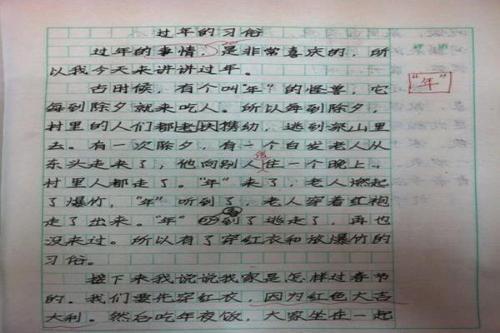 过年的习俗
过年的事情，是非常喜庆的，所
以我今天来讲讲过年。
古时候，有个叫"年"的怪兽，它
每到除夕就来吃人。所以每到除夕，
村里的人们都扶老携幼，逃到深山里
去。有一次除夕，有一个白发老人从
东头走来了，他向别人住一个晚上。
村里人都走了。"年"来了，老人燃起
了爆竹，"年"听到了，老人穿着红袍
走了出来。"年"看到了逃走了，再也
没来过。所以有了穿红衣和放爆竹的
习俗。
接下来我说说我家是怎样过春节
的。我们要先穿红衣，因为红色大吉
大利。然后吃年夜饭，大家坐在一起
"年"